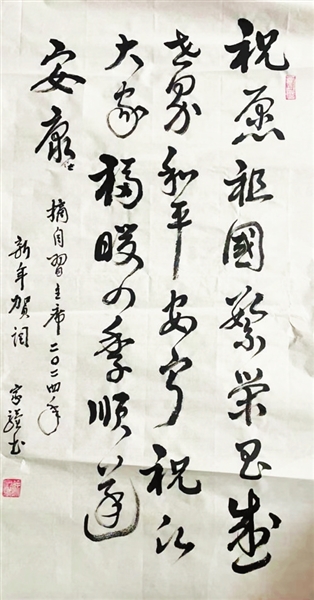 祝愿祖國繁荣昌盛
世界和平安宁祝
大家福暖四季順遂
安康
摘自習主席二〇二四年
新年贺词
家 书